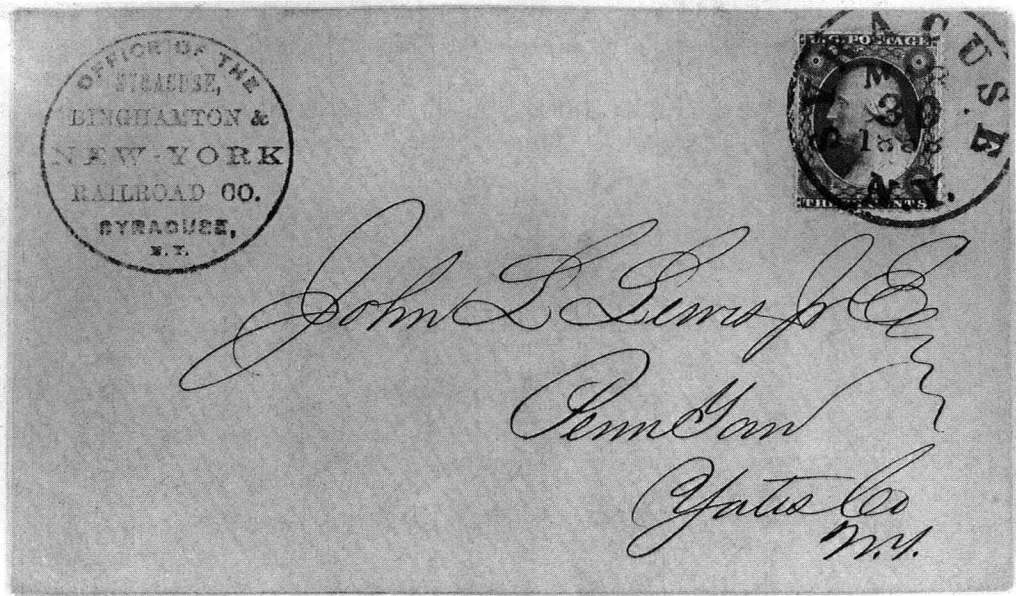 OFFICE OF THE
SYRACUSE,
BINGHAMTON &
NEW-YORK
RAILROAD CO.
SYRACUSE,
N.Y.
U.S. POSTAGE
SYRACUSE
30
N.Y.
THREE CENTS
John L Lewis Jr Esq
Penn Yan
Yates Co
N.Y.